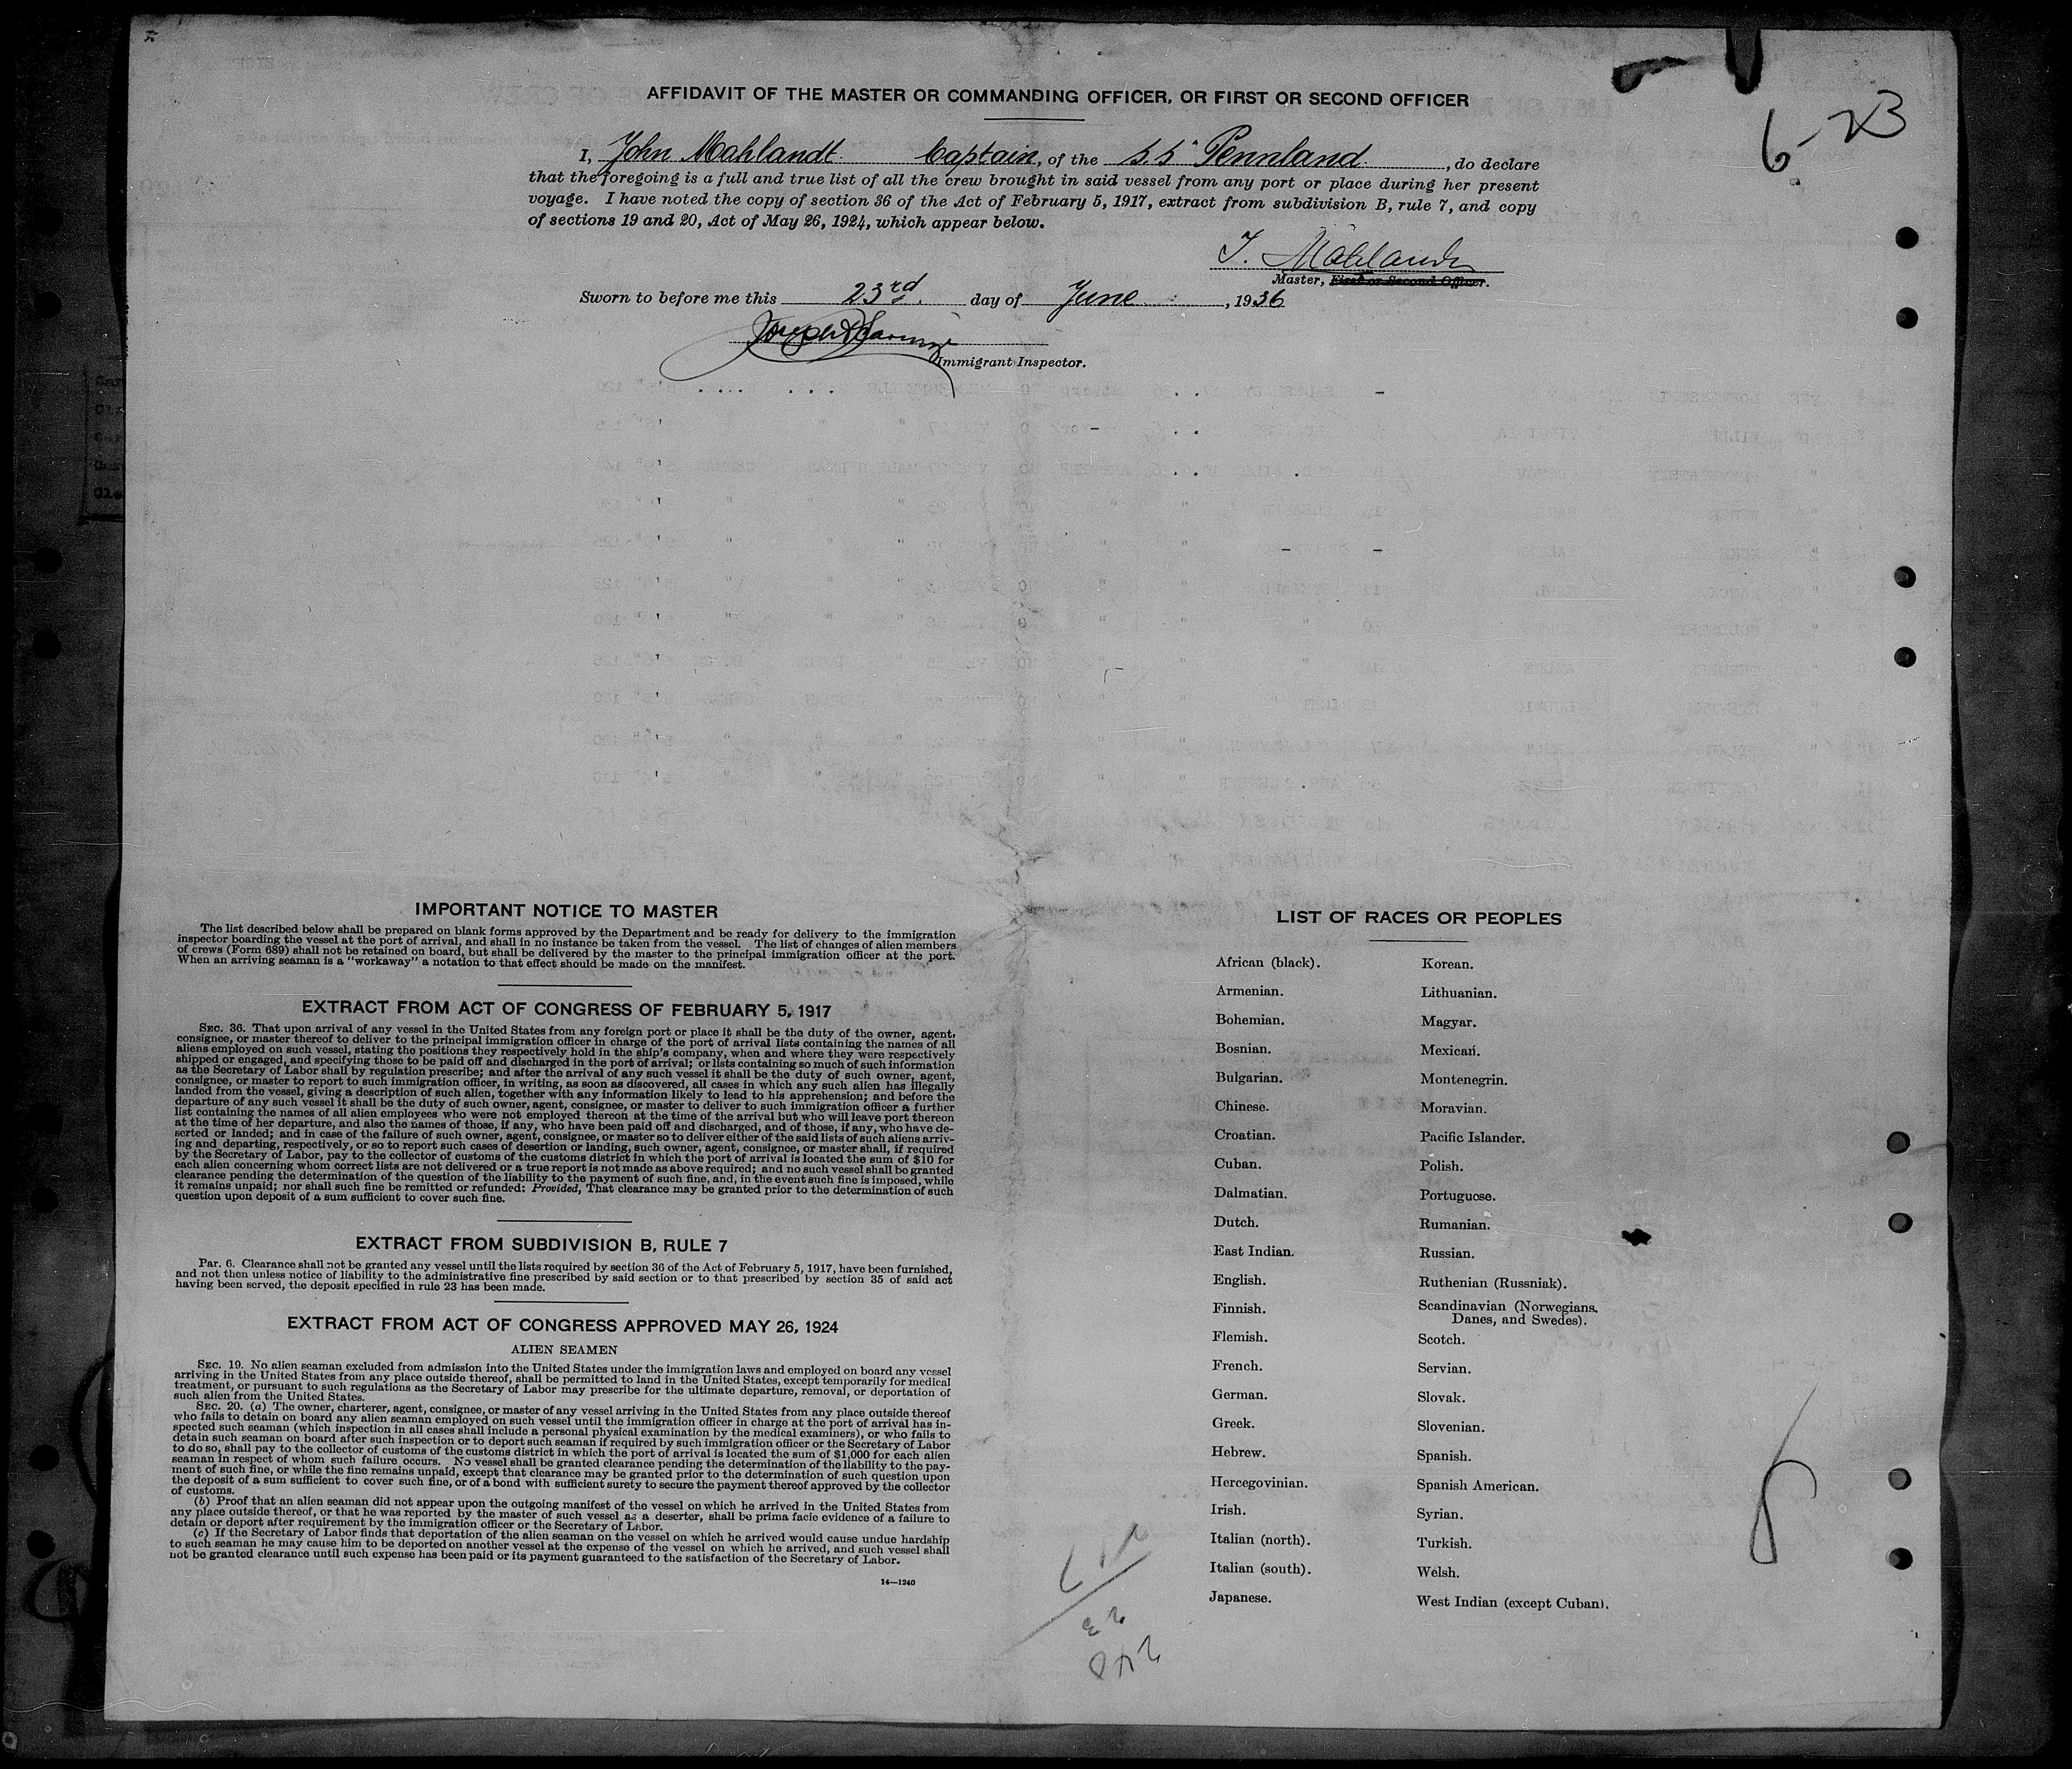 AFFIDAVIT OF THE MASTER OR COMMANDING OFFICER, OR FIRST OR SECOND OFFICER
6-23
I, John Mahlandt Captain, of the SS Pennland, do declare
that the foregoing is a full and true list of all the crew brought in said vessel from any port or place during her present
voyage. I have noted the copy of section 36 of the Act of February 5, 1917, extract from subdivision B, rule 7, and copy
of sections 19 and 20, Act of May 26, 1924, which appear below.
J. Mahlandt
Master, First or Second Officer.
Sworn to before me this 23rd. day of June, 1936
Immigrant Inspector.
IMPORTANT NOTICE TO MASTER
The list described below shall be prepared on blank forms approved by the Department and be ready for delivery to the immigration
inspector boarding the vessel at the port of arrival, and shall in no instance be taken from the vessel. The list of changes of alien members
of crews (Form 689) shall not be retained on board, but shall be delivered by the master to the principal immigration officer at the port.
When an arriving seaman is a "workaway" a notation to that effect should be made on the manifest.
EXTRACT FROM ACT OF CONGRESS OF FEBRUARY 5, 1917
SEC. 36. That upon arrival of any vessel in the United States from any foreign port or place it shall be the duty of the owner, agent,
consignee, or master thereof to deliver to the principal immigration officer in charge of the port of arrival lists containing the names of all
aliens employed on such vessel, stating the positions they respectively hold in the ship's company, when and where they were respectively
shipped or engaged, and specifying those to be paid off and discharged in the port of arrival; or lists containing so much of such information
as the Secretary of Labor shall by regulation prescribe; and after the arrival of any such vessel it shall be the duty of such owner, agent,
consignee, or master to report to such immigration officer, in writing, as soon as discovered, all cases in which any such alien has illegally
landed from the vessel, giving a description of such alien, together with any information likely to lead to his apprehension; and before the
departure of any such vessel it shall be the duty of such owner, agent, consignee, or master to deliver to such immigration officer a further
list containing the names of all alien employees who were not employed thereon at the time of the arrival but who will leave port thereon
at the time of her departure, and also the names of those, if any, who have been paid off and discharged, and of those, if any, who have de-
serted or landed; and in case of the failure of such owner, agent, consignee, or master so to deliver either of the said lists of such aliens arriv-
ing and departing, respectively, or so to report such cases of desertion or landing, such owner, agent, consignee, or master shall, if required
by the Secretary of Labor, pay to the collector of customs of the customs district in which the port of arrival is located the sum of $10 for
each alien concerning whom correct lists are not delivered or a true report is not made as above required; and no such vessel shall be granted
clearance pending the determination of the question of the liability to the payment of such fine, and, in the event such fine is imposed, while
it remains unpaid; nor shall such fine be remitted or refunded: Provided, That clearance may be granted prior to the determination of such
question upon deposit of a sum sufficient to cover such fine.
EXTRACT FROM SUBDIVISION B, RULE 7
Par. 6. Clearance shall not be granted any vessel until the lists required by section 36 of the Act of February 5, 1917, have been furnished,
and not then unless notice of liability to the administrative fine prescribed by said section or to that prescribed by section 35 of said act
having been served, the deposit specified in rule 23 has been made.
EXTRACT FROM ACT OF CONGRESS APPROVED MAY 26, 1924
ALIEN SEAMEN
SEC. 19. No alien seaman excluded from admission into the United States under the immigration laws and employed on board any vessel
arriving in the United States from any place outside thereof, shall be permitted to land in the United States, except temporarily for medical
treatment, or pursuant to such regulations as the Secretary of Labor may prescribe for the ultimate departure, removal, or deportation of
such alien from the United States.
SEC. 20. (a) The owner, charterer, agent, consignee, or master of any vessel arriving in the United States from any place outside thereof
who fails to detain on board any alien seaman employed on such vessel until the immigration officer in charge at the port of arrival has in-
spected such seaman (which inspection in all cases shall include a personal physical examination by the medical examiners), or who fails to
detain such seaman on board after such inspection or to deport such seaman if required by such immigration officer or the Secretary of Labor
to do so, shall pay to the collector of customs of the customs district in which the port of arrival is located the sum of $1,000 for each alien
seaman in respect of whom such failure occurs. No vessel shall be granted clearance pending the determination of the liability to the pay-
ment of such fine, or while the fine remains unpaid, except that clearance may be granted prior to the determination of such question upon
the deposit of a sum sufficient to cover such fine, or of a bond with sufficient surety to secure the payment thereof approved by the collector
of customs.
(b) Proof that an alien seaman did not appear upon the outgoing manifest of the vessel on which he arrived in the United States from
any place outside thereof, or that he was reported by the master of such vessel as a deserter, shall be prima facie evidence of a failure to
detain or deport after requirement by the immigration officer or the Secretary of Labor.
(c) If the Secretary of Labor finds that deportation of the alien seaman on the vessel on which he arrived would cause undue hardship
to such seaman he may cause him to be deported on another vessel at the expense of the vessel on which he arrived, and such vessel shall
not be granted clearance until such expense has been paid or its payment guaranteed to the satisfaction of the Secretary of Labor.
14—1240
LIST OF RACES OR PEOPLES
African (black).
Armenian.
Bohemian.
Bosnian.
Bulgarian.
Chinese.
Croatian.
Cuban.
Dalmatian.
Dutch.
East Indian.
English.
Finnish.
Flemish.
French.
German.
Greek.
Hebrew.
Hercegovinian.
Irish.
Italian (north).
Italian (south).
Japanese.
Korean.
Lithuanian.
Magyar.
Mexican.
Montenegrin.
Moravian.
Pacific Islander.
Polish.
Portuguese.
Rumanian.
Russian.
Ruthenian (Russniak).
Scandinavian (Norwegians,
Danes, and Swedes).
Scotch.
Servian.
Slovak.
Slovenian.
Spanish.
Spanish American.
Syrian.
Turkish.
Welsh.
West Indian (except Cuban).